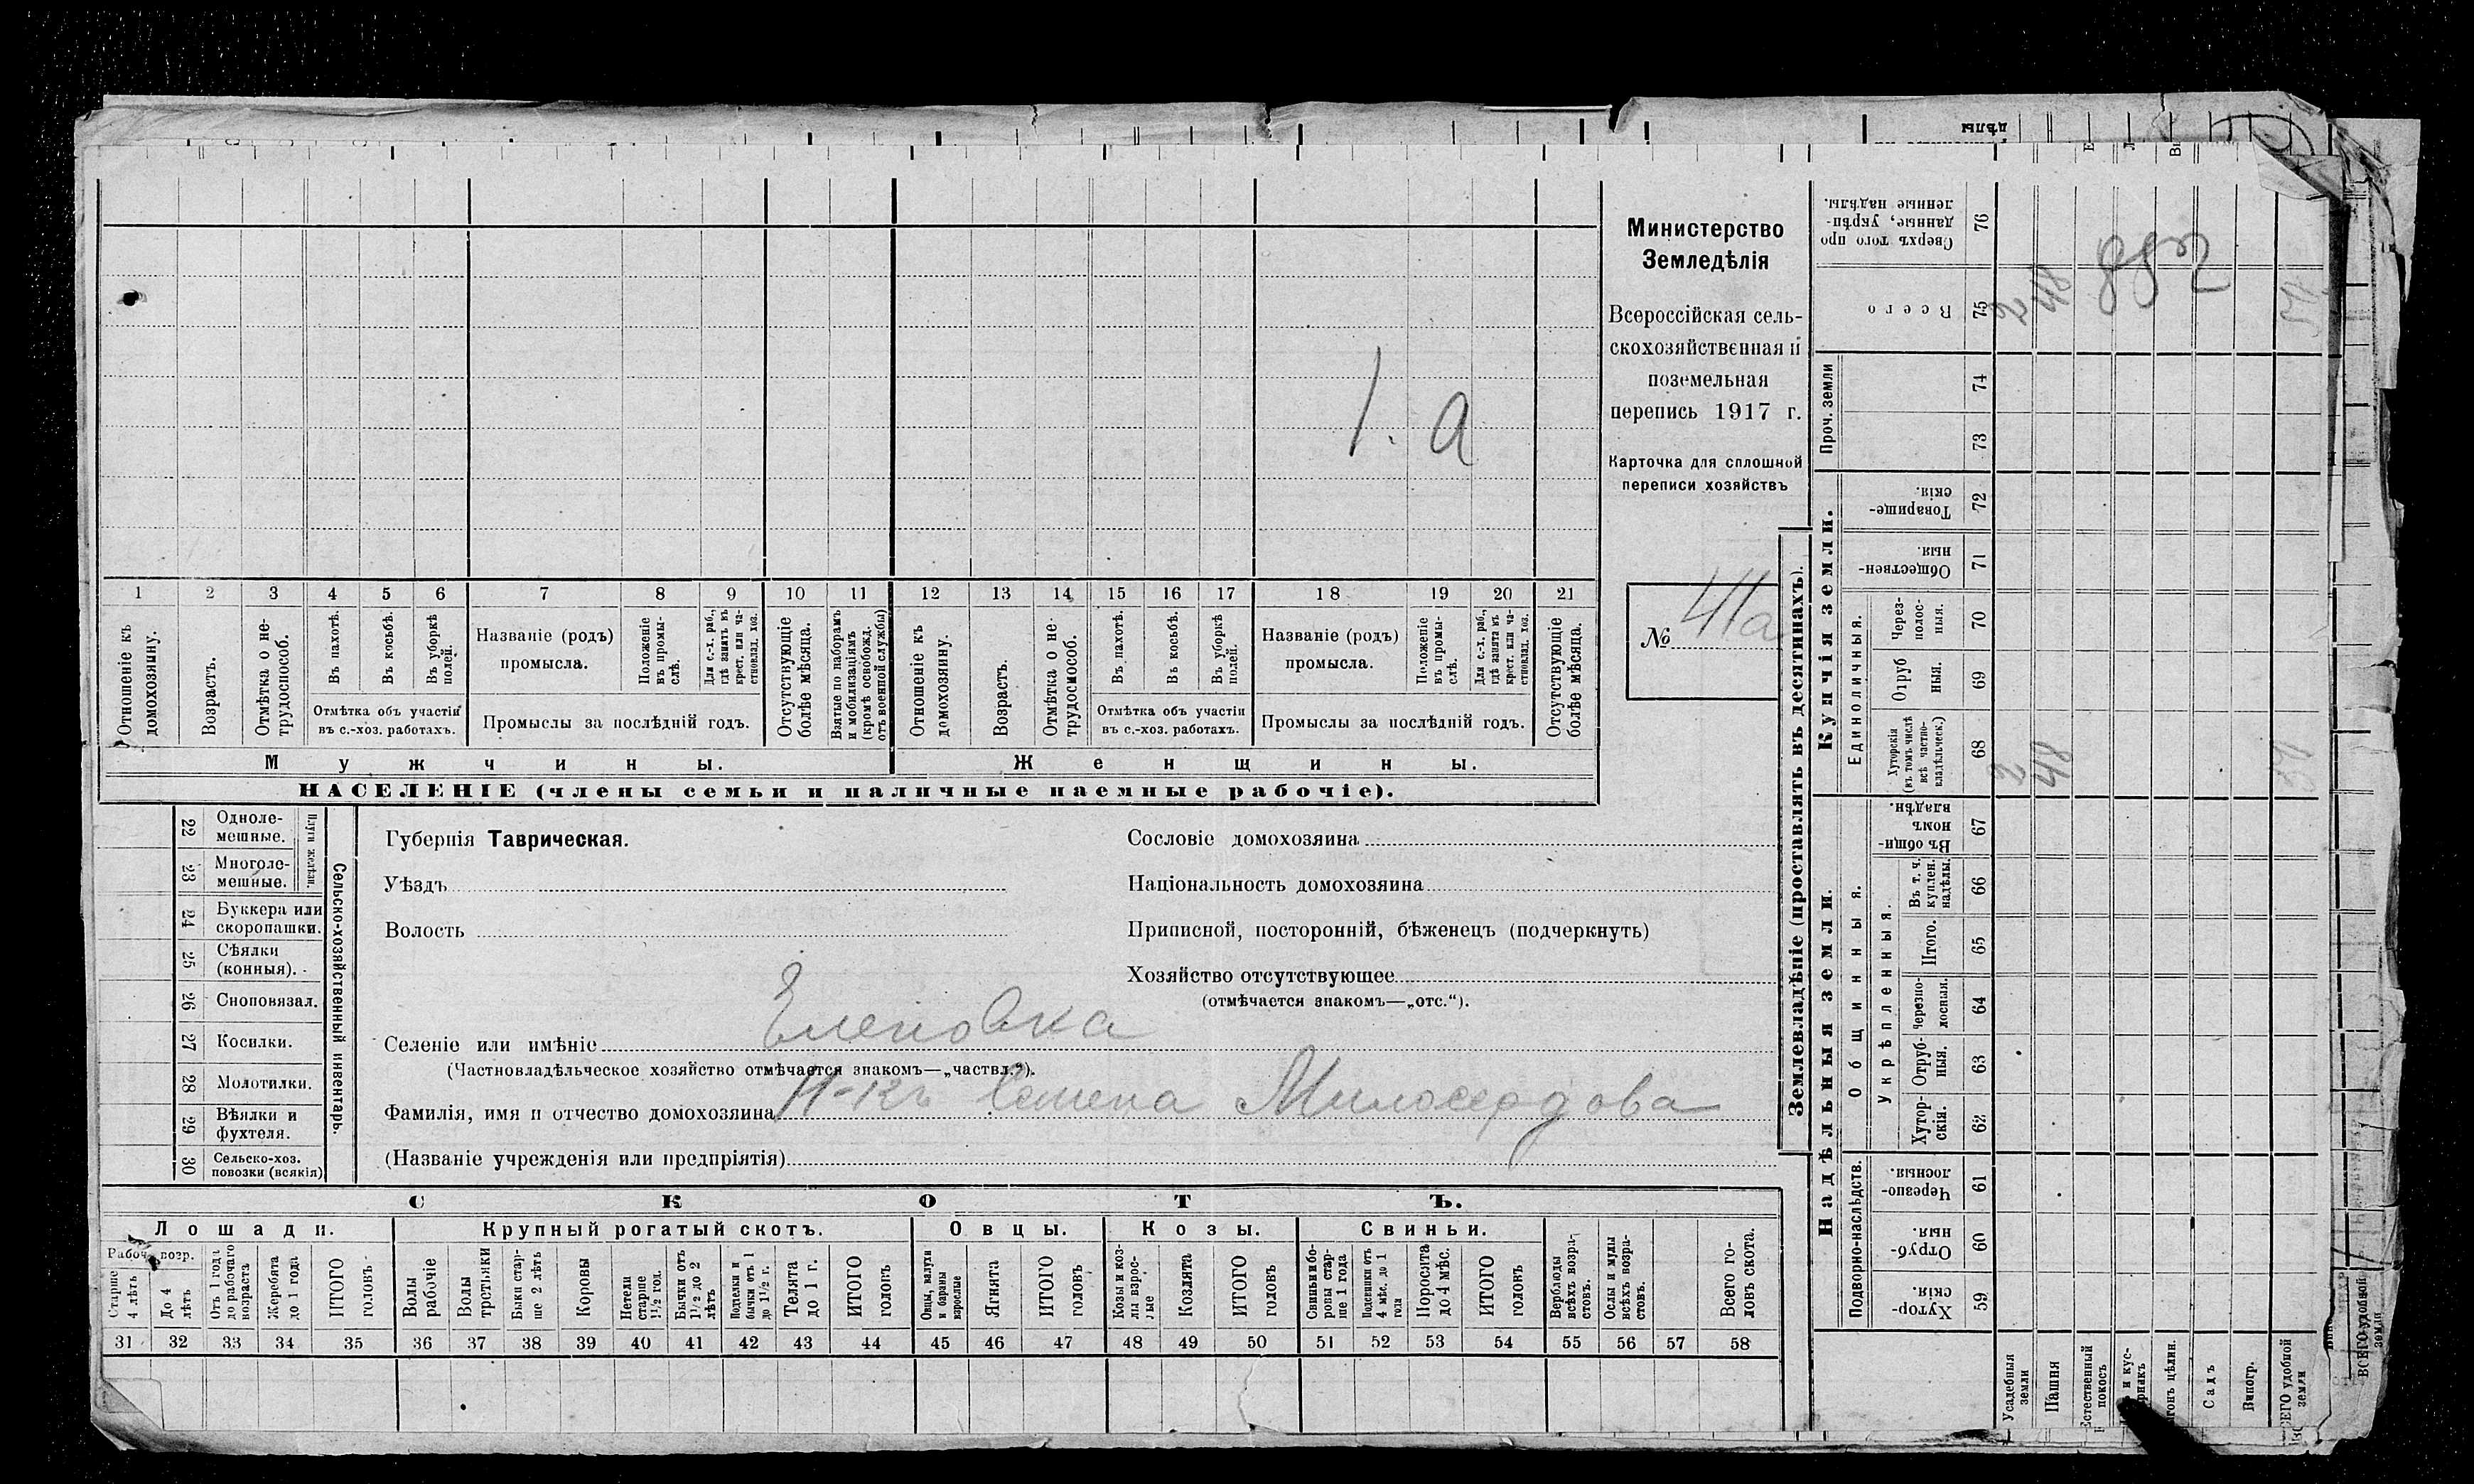 дѣлы
Министерство
Земледѣлія
Всероссійская сель-
скохозяйственная и
поземельная
перепись 1917 г.
Карточка для сплошной
переписи хозяйствъ
№ 41а
1. а
1 2 3 4 5 6 7 8 9 10 11 12 13 14 15 16 17 18 19 20 21
Отношеніе къ домохозяину.
Возрастъ.
Отмѣтка о не-трудоспособ.
Въ пахотѣ.
Въ косьбѣ.
Въ уборкѣ полей.
Отмѣтка объ участіи
въ с.-хоз. работахъ.
Названіе (родъ)
промысла.
Положеніе въ промы-слѣ.
Для с.-х. раб., гдѣ занятъ въ крест. или ча-стновлад. хоз.
Промыслы за послѣдній годъ.
Отсутствующіе болѣе мѣсяца.
Взятые по наборамъ и мобилизаціямъ (кромѣ освобожд. отъ военной службы)
Отношеніе къ домохозяину.
Возрастъ.
Отмѣтка о не-трудоспособ.
Въ пахотѣ.
Въ косьбѣ.
Въ уборкѣ полей.
Отмѣтка объ участіи
въ с.-хоз. работахъ.
Названіе (родъ)
промысла.
Положеніе въ промы-слѣ.
Для с.-х. раб., гдѣ занята въ крест. или ча-стновлад. хоз.
Промыслы за послѣдній годъ.
Отсутствующіе болѣе мѣсяца.
Мужчины.
Женщины.
НАСЕЛЕНІЕ (члены семьи и наличные наемные рабочіе).
22 Одноле-мешные.
23 Многоле-мешные.
Плуги желѣзн.
24 Буккера или скоропашки.
25 Сѣялки (конныя).
26 Сноповязал.
27 Косилки.
28 Молотилки.
29 Вѣялки и фухтеля.
30 Сельско-хоз. повозки (всякія)
Сельско-хозяйственный инвентарь.
Губернія Таврическая.
Уѣздъ
Волость
Селеніе или имѣніе Еленовка
(Частновладѣльческое хозяйство отмѣчается знакомъ—„частвл.“).
Фамилія, имя и отчество домохозяина Н-ки Семена Милосердова
(Названіе учрежденія или предпріятія)
Сословіе домохозяина
Національность домохозяина
Приписной, посторонній, бѣженецъ (подчеркнуть)
Хозяйство отсутствующее
(отмѣчается знакомъ—„отс.“).
СКОТЪ.
Лошади.
Крупный рогатый скотъ.
Овцы.
Козы.
Свиньи.
Рабоч. возр.
Старше 4 лѣтъ
До 4 лѣтъ
Отъ 1 года до рабочаго возраста
Жеребята до 1 года
ИТОГО головъ
Волы рабочіе
Волы третьяки
Быки стар-ше 2 лѣтъ
Коровы
Нетели старше 1½ год.
Бычки отъ 1½ до 2 лѣтъ
Подтелки и бычки отъ 1 до 1½ г.
Телята до 1 г.
ИТОГО головъ
Овцы, валухи и бараны взрослые
Ягнята
ИТОГО головъ
Козы и коз-лы взрос-лые
Козлята
ИТОГО головъ
Свиньи и бо-ровы стар-ше 1 года
Подсвинки отъ 4 мѣс. до 1 года
Поросята до 4 мѣс.
ИТОГО головъ
Верблюды всѣхъ возра-стовъ.
Ослы и мулы всѣхъ возра-стовъ.
Всего го-ловъ скота.
31 32 33 34 35 36 37 38 39 40 41 42 43 44 45 46 47 48 49 50 51 52 53 54 55 56 57 58
Землевладѣніе (проставлять въ десятинахъ).
Надѣльныя земли.
Купчія земли.
Проч. земли
Подворно-наслѣдств.
Общинныя.
Укрѣпленныя.
Единоличныя.
Хутор-скія. 59
Отруб-ныя. 60
Черезпо-лосныя. 61
Хутор-скія. 62
Отруб-ныя. 63
Черезпо-лосныя. 64
Итого. 65
Въ т. ч. куплен. надѣлы. 66
Въ общи-номъ владѣн. 67
Хуторскія (въ томъ числѣ всѣ частно-владѣльческ.) 68
Отруб ныя. 69
Через-полос-ныя. 70
Обществен-ныя. 71
Товарище-скія. 72
73
74
Всего 75
Сверхъ того про данные, укрѣп-ленные надѣлы. 76
Усадебныя земли
Пашня
Естественный покосъ
Садъ
Виногр.
ВСЕГО удобной земли
2 48
2 48
882